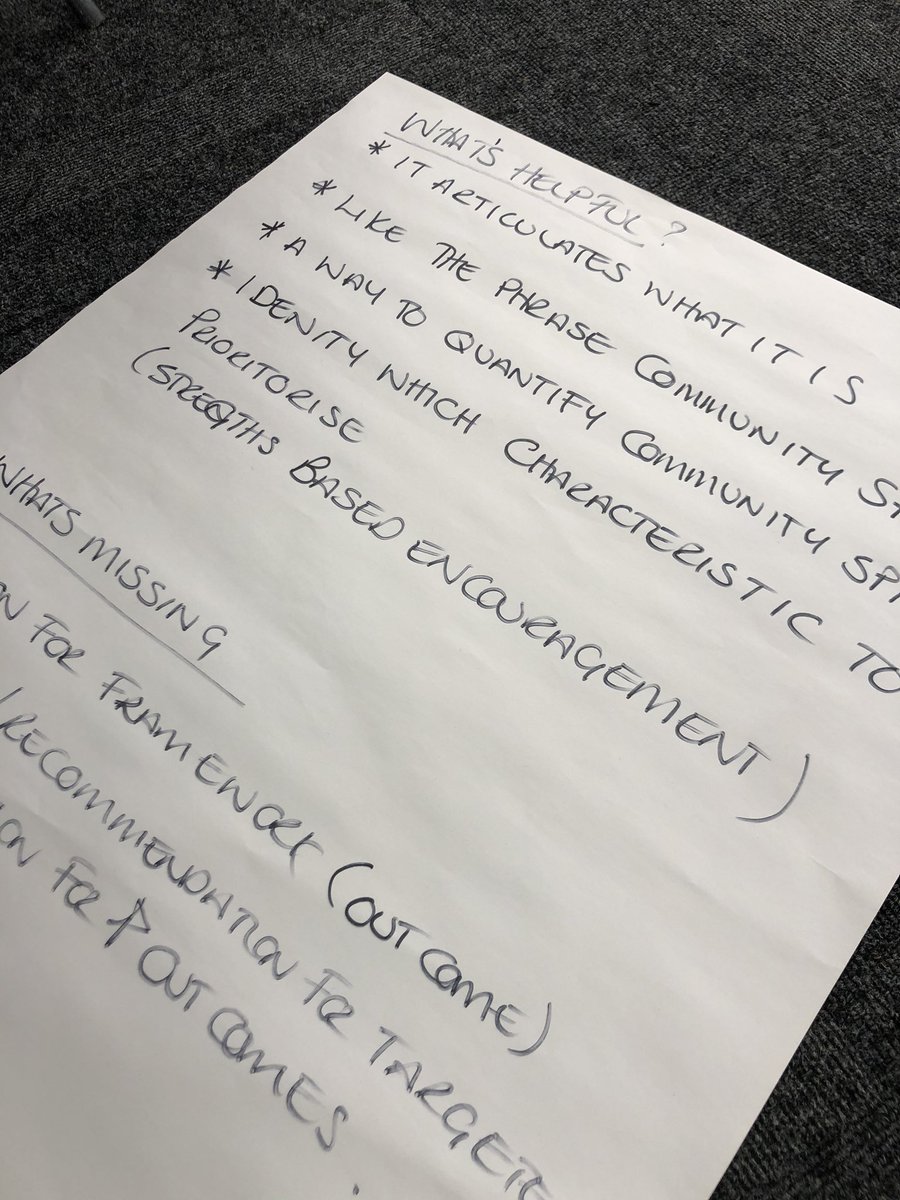 WHAT'S HELPFUL?
* IT ARTICULATES WHAT IT IS
* LIKE THE PHRASE COMMUNITY
* A WAY TO QUANTIFY COMMUNITY
* IDENITY WHICH CHARACTERISTIC TO
PRIORITORISE
(STREQTHS BASED ENCOURAGEMENT)
WHATS MISSING
FOR FRAMEWORK (OUTCOME)
/RECOMMENDATION FOR
FOR ↑ OUTCOMES.